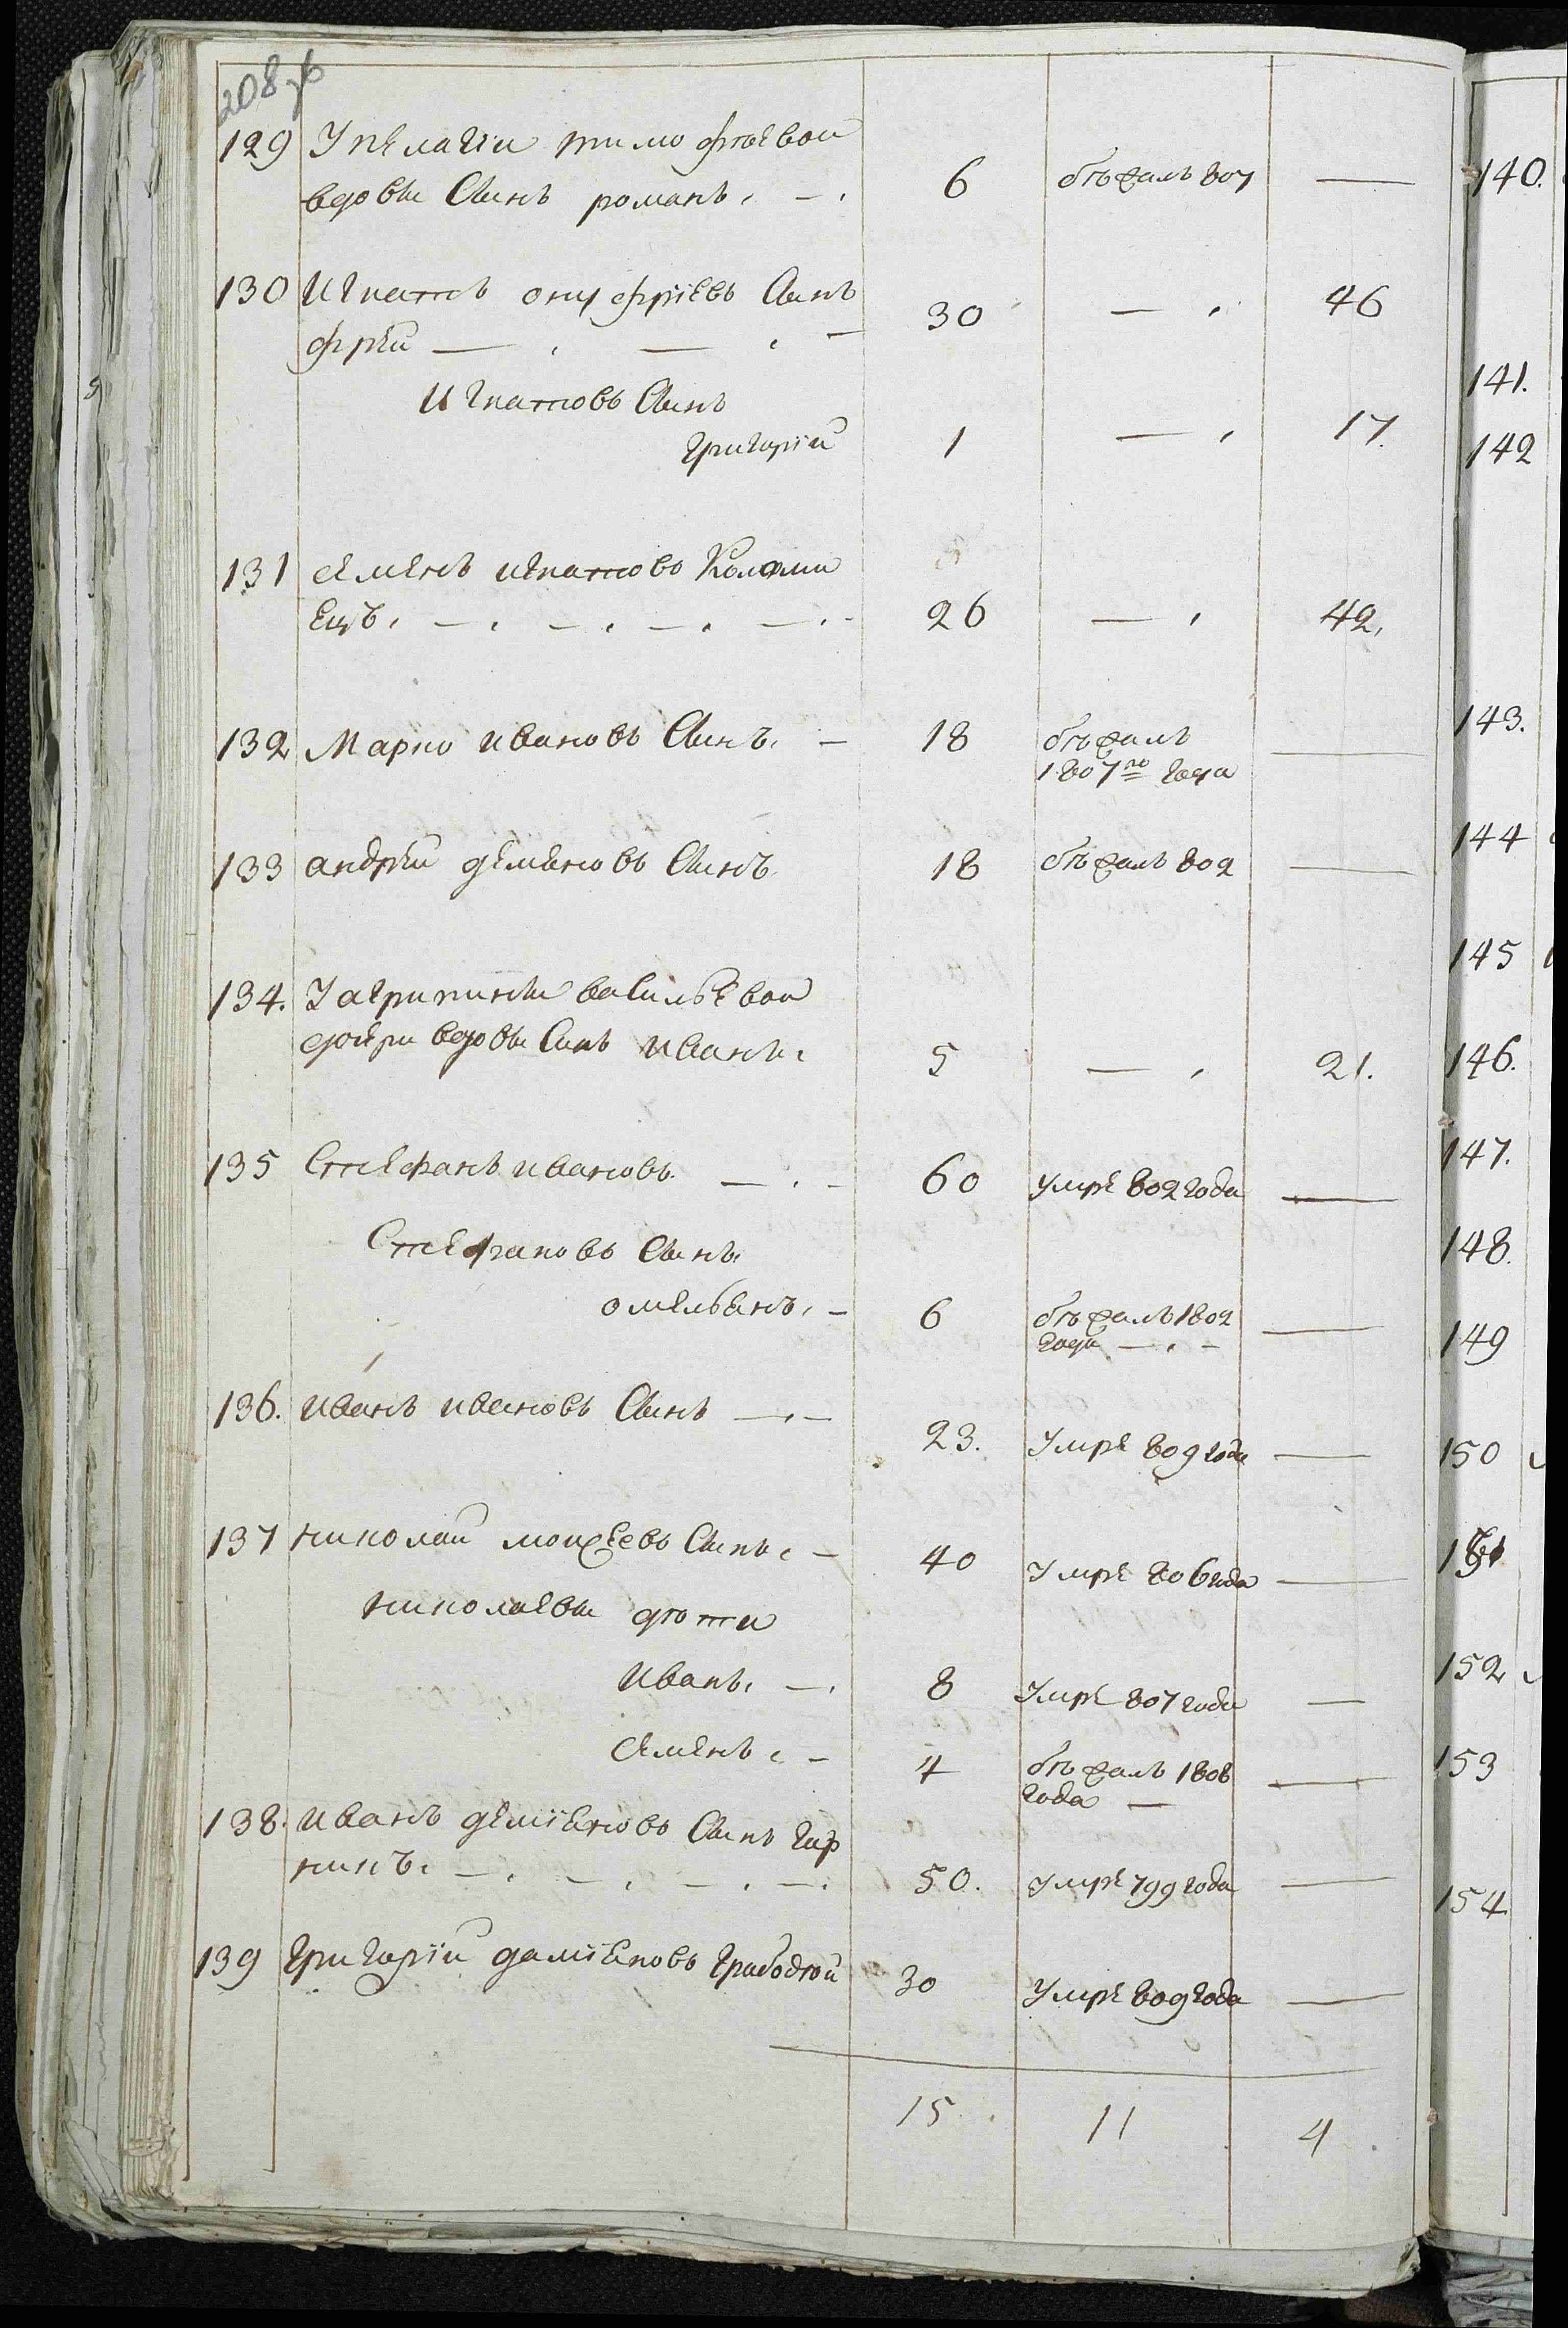 208 зв
129 У пелагеи тимофѣевои
вдовы Сынъ романъ 6 бѣжалъ 807 —
130 Игнатъ онуфріевъ Сынъ
фрей 30 — 46
Игнатовъ Сынъ
григоріи 1 — 17.
131 семенъ игнатовъ Коломи
ецъ 26 — 42.
132 Марко ивановъ Сынъ 18 бѣжалъ
1807го года —
133 андрей деменовъ Сынъ 18 бѣжалъ 802 —
134. У агрипины васильевои
дочери вдовы Сынъ иванъ 5 — 21.
135 Стефанъ ивановъ 60 умре 802 года —
Стефановъ Сынъ
омельянъ 6 бѣжалъ 1802
года —
136. иванъ ивановъ Сынъ 23. умре 809 года —
137 николаи моисеевъ Сынъ 40 умре 806 года —
николаевы дѣти
иванъ 8 умре 807 года —
семенъ 4 бѣжалъ 1808
года —
138. иванъ деміяновъ Сынъ
50. умре 799 года —
139 григоріи даміяновъ 30 умре 809 года —
15 11 4
140.
141.
142
143.
144
145
146.
147.
148.
149
150
151
152
153
154